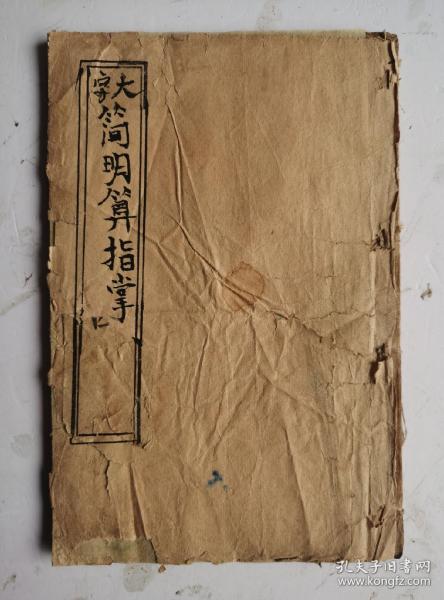 大字
简明算指掌
仁
孔夫子旧书网
www.kongfz.com